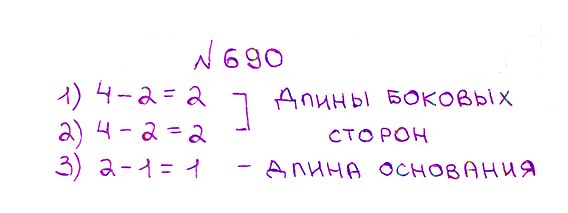 №690
1) 4-2=2 ] ДЛИНЫ БОКОВЫХ
2) 4-2=2 СТОРОН
3) 2-1=1 - ДЛИНА ОСНОВАНИЯ